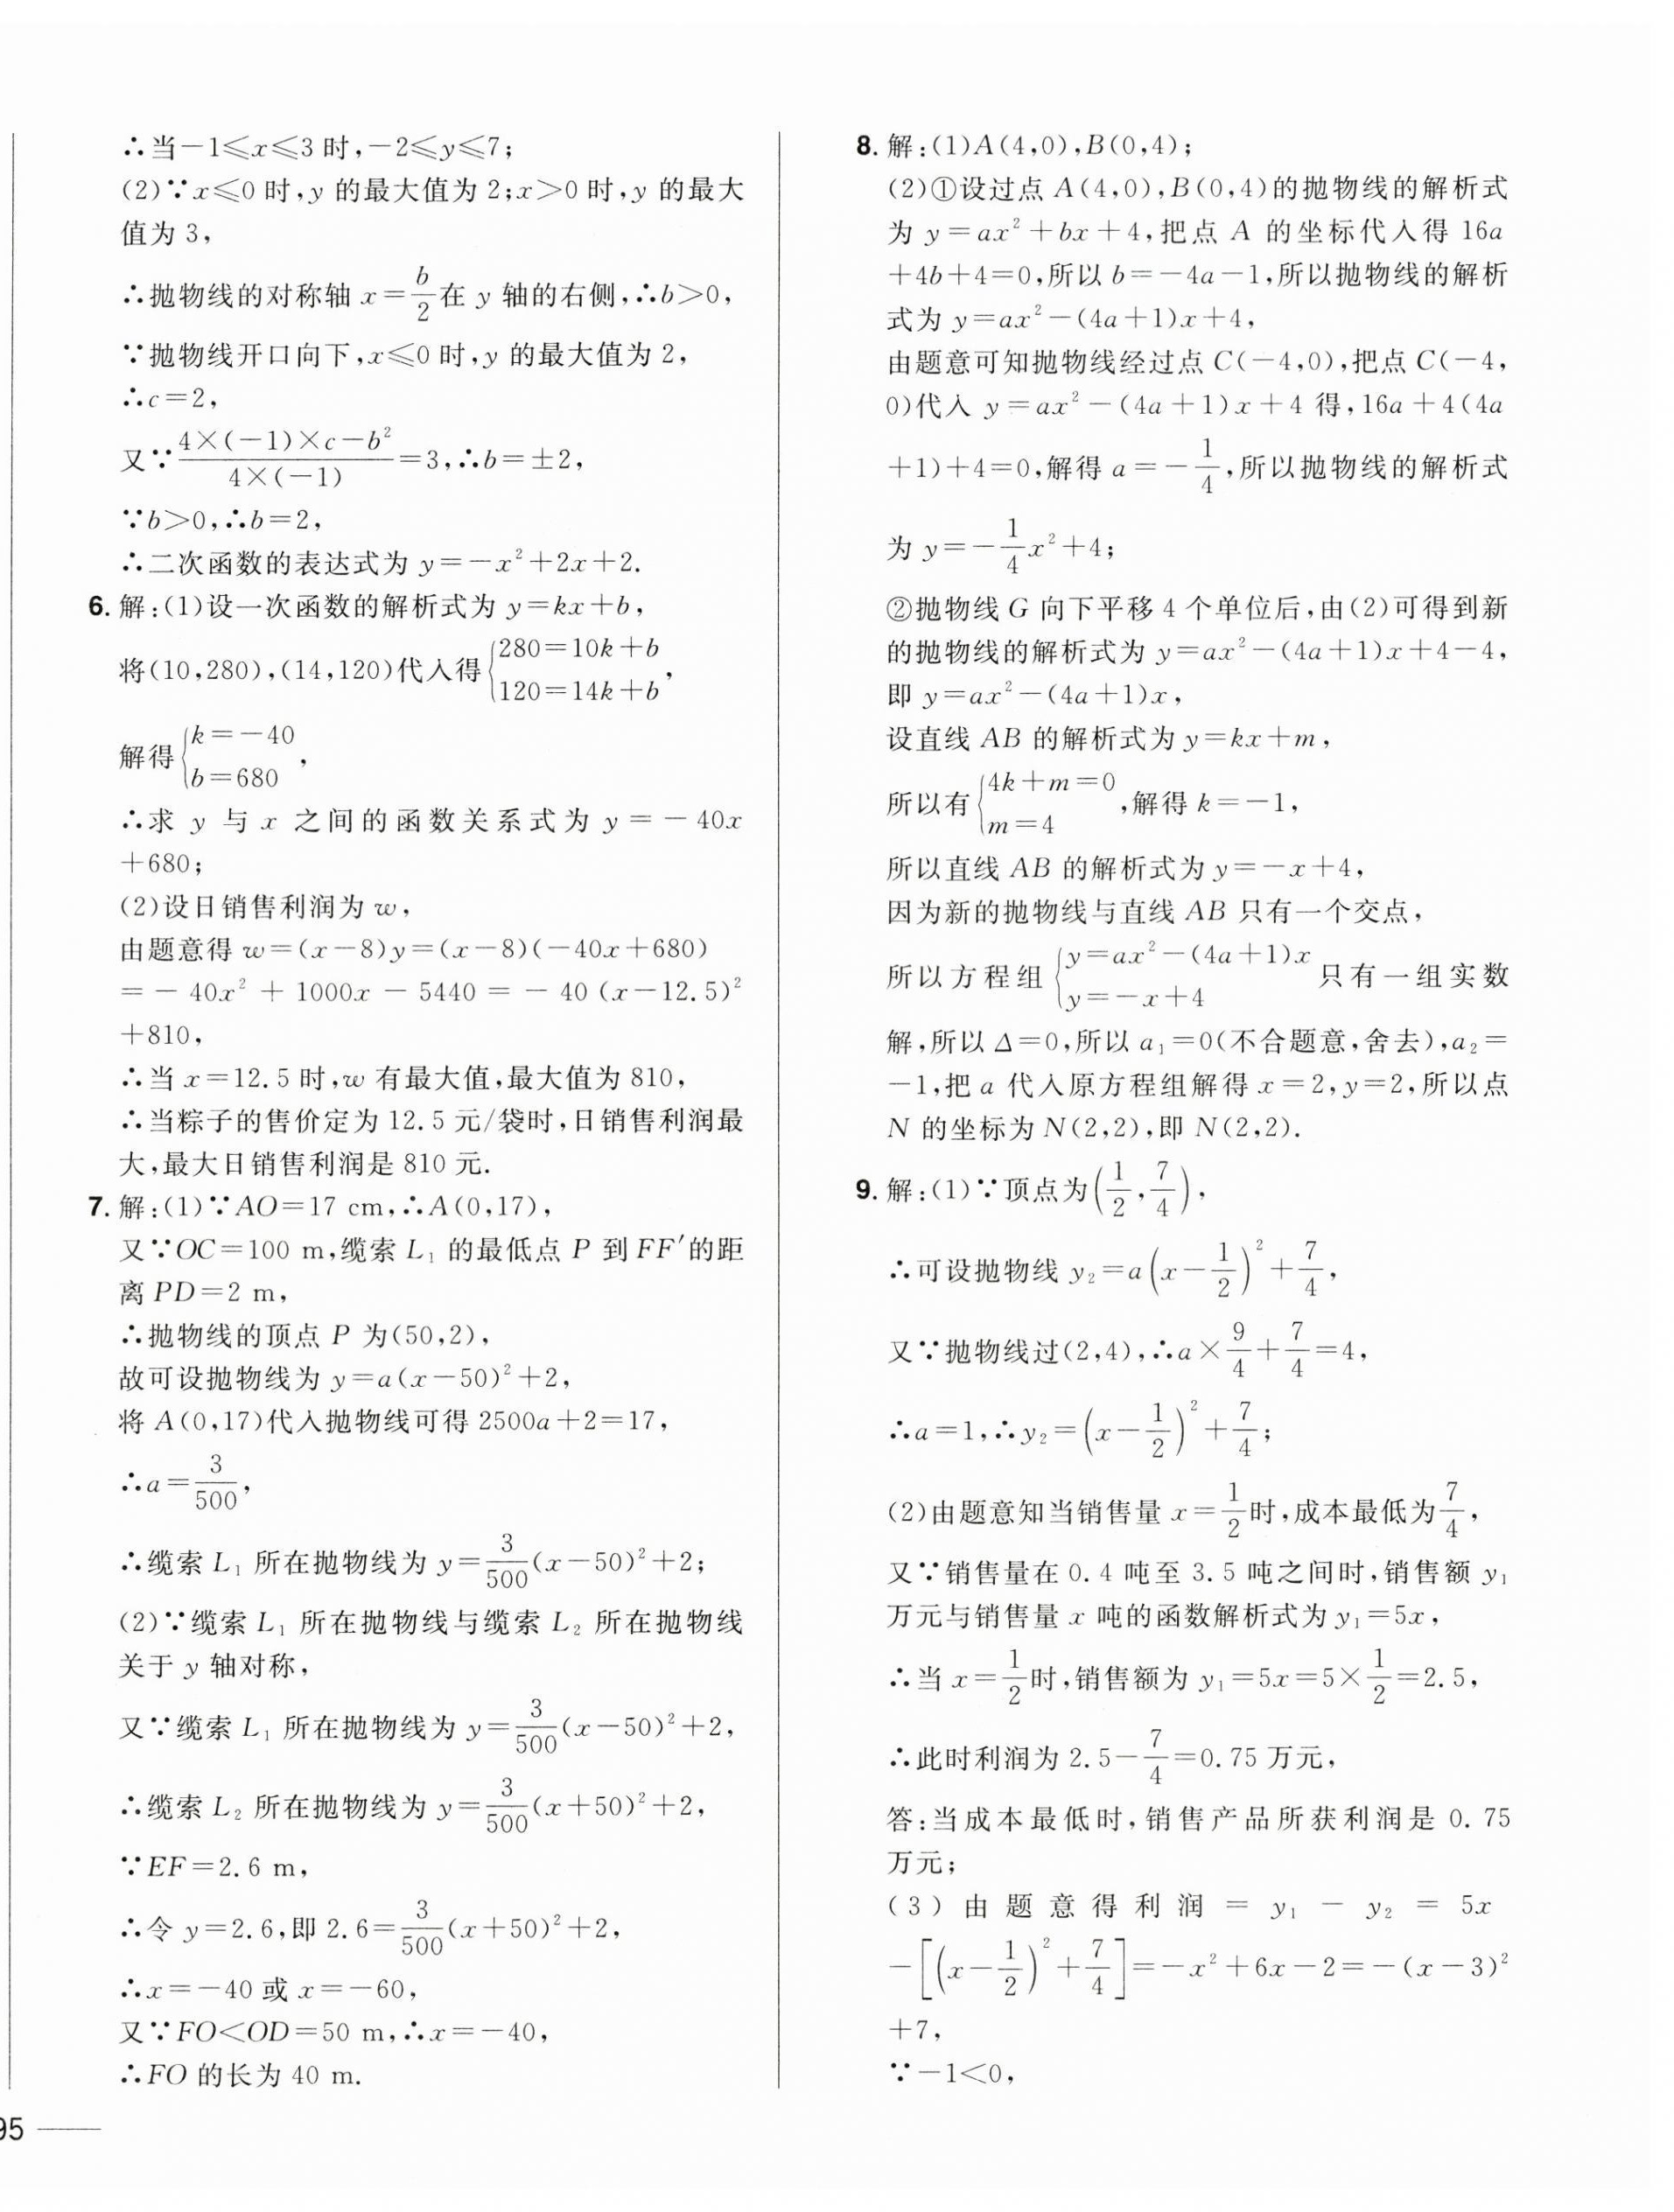 ∴当－1≤x≤3 时,－2≤y≤7;
(2)∵x≤0 时,y 的最大值为 2;x>0 时,y 的最大
值为 3,
∴抛物线的对称轴 x=b/2在 y 轴的右侧,∴b>0,
∵抛物线开口向下,x≤0 时,y 的最大值为 2,
∴c=2,
又∵(4×(－1)×c－b²)/(4×(－1))=3,∴b=±2,
∵b>0,∴b=2,
∴二次函数的表达式为 y=－x²+2x+2.
6. 解:(1)设一次函数的解析式为 y=kx+b,
将(10,280),(14,120)代入得{280=10k+b
120=14k+b,
解得{k=－40
b=680,
∴求 y 与 x 之间的函数关系式为 y=－40x
+680;
(2)设日销售利润为 w,
由题意得 w=(x－8)y=(x－8)(－40x+680)
=－40x²+1000x－5440=－40(x－12.5)²
+810,
∴当 x=12.5 时,w 有最大值,最大值为 810,
∴当粽子的售价定为 12.5 元/袋时,日销售利润最
大,最大日销售利润是 810 元.
7. 解:(1)∵AO=17 cm,∴A(0,17),
又∵OC=100 m,缆索 L₁ 的最低点 P 到 FF′的距
离 PD=2 m,
∴抛物线的顶点 P 为(50,2),
故可设抛物线为 y=a(x－50)²+2,
将 A(0,17)代入抛物线可得 2500a+2=17,
∴a=3/500,
∴缆索 L₁ 所在抛物线为 y=3/500(x－50)²+2;
(2)∵缆索 L₁ 所在抛物线与缆索 L₂ 所在抛物线
关于 y 轴对称,
又∵缆索 L₁ 所在抛物线为 y=3/500(x－50)²+2,
∴缆索 L₂ 所在抛物线为 y=3/500(x+50)²+2,
∵EF=2.6 m,
∴令 y=2.6,即 2.6=3/500(x+50)²+2,
∴x=－40 或 x=－60,
又∵FO<OD=50 m,∴x=－40,
∴FO 的长为 40 m.
95
8. 解:(1)A(4,0),B(0,4);
(2)①设过点 A(4,0),B(0,4)的抛物线的解析式
为 y=ax²+bx+4,把点 A 的坐标代入得 16a
+4b+4=0,所以 b=－4a－1,所以抛物线的解析
式为 y=ax²－(4a+1)x+4,
由题意可知抛物线经过点 C(－4,0),把点 C(－4,
0)代入 y=ax²－(4a+1)x+4 得,16a+4(4a
+1)+4=0,解得 a=－1/4,所以抛物线的解析式
为 y=－1/4x²+4;
②抛物线 G 向下平移 4 个单位后,由(2)可得到新
的抛物线的解析式为 y=ax²－(4a+1)x+4－4,
即 y=ax²－(4a+1)x,
设直线 AB 的解析式为 y=kx+m,
所以有{4k+m=0
m=4,解得 k=－1,
所以直线 AB 的解析式为 y=－x+4,
因为新的抛物线与直线 AB 只有一个交点,
所以方程组{y=ax²－(4a+1)x
y=－x+4只有一组实数
解,所以 Δ=0,所以 a₁=0(不合题意,舍去),a₂=
－1,把 a 代入原方程组解得 x=2,y=2,所以点
N 的坐标为 N(2,2),即 N(2,2).
9. 解:(1)∵顶点为(1/2,7/4),
∴可设抛物线 y₂=a(x－1/2)²+7/4,
又∵抛物线过(2,4),∴a×9/4+7/4=4,
∴a=1,∴y₂=(x－1/2)²+7/4;
(2)由题意知当销售量 x=1/2时,成本最低为7/4,
又∵销售量在 0.4 吨至 3.5 吨之间时,销售额 y₁
万元与销售量 x 吨的函数解析式为 y₁=5x,
∴当 x=1/2时,销售额为 y₁=5x=5×1/2=2.5,
∴此时利润为 2.5－7/4=0.75 万元,
答:当成本最低时,销售产品所获利润是 0.75
万元;
(3)由题意得利润=y₁－y₂=5x
－[(x－1/2)²+7/4]=－x²+6x－2=－(x－3)²
+7,
∵－1<0,